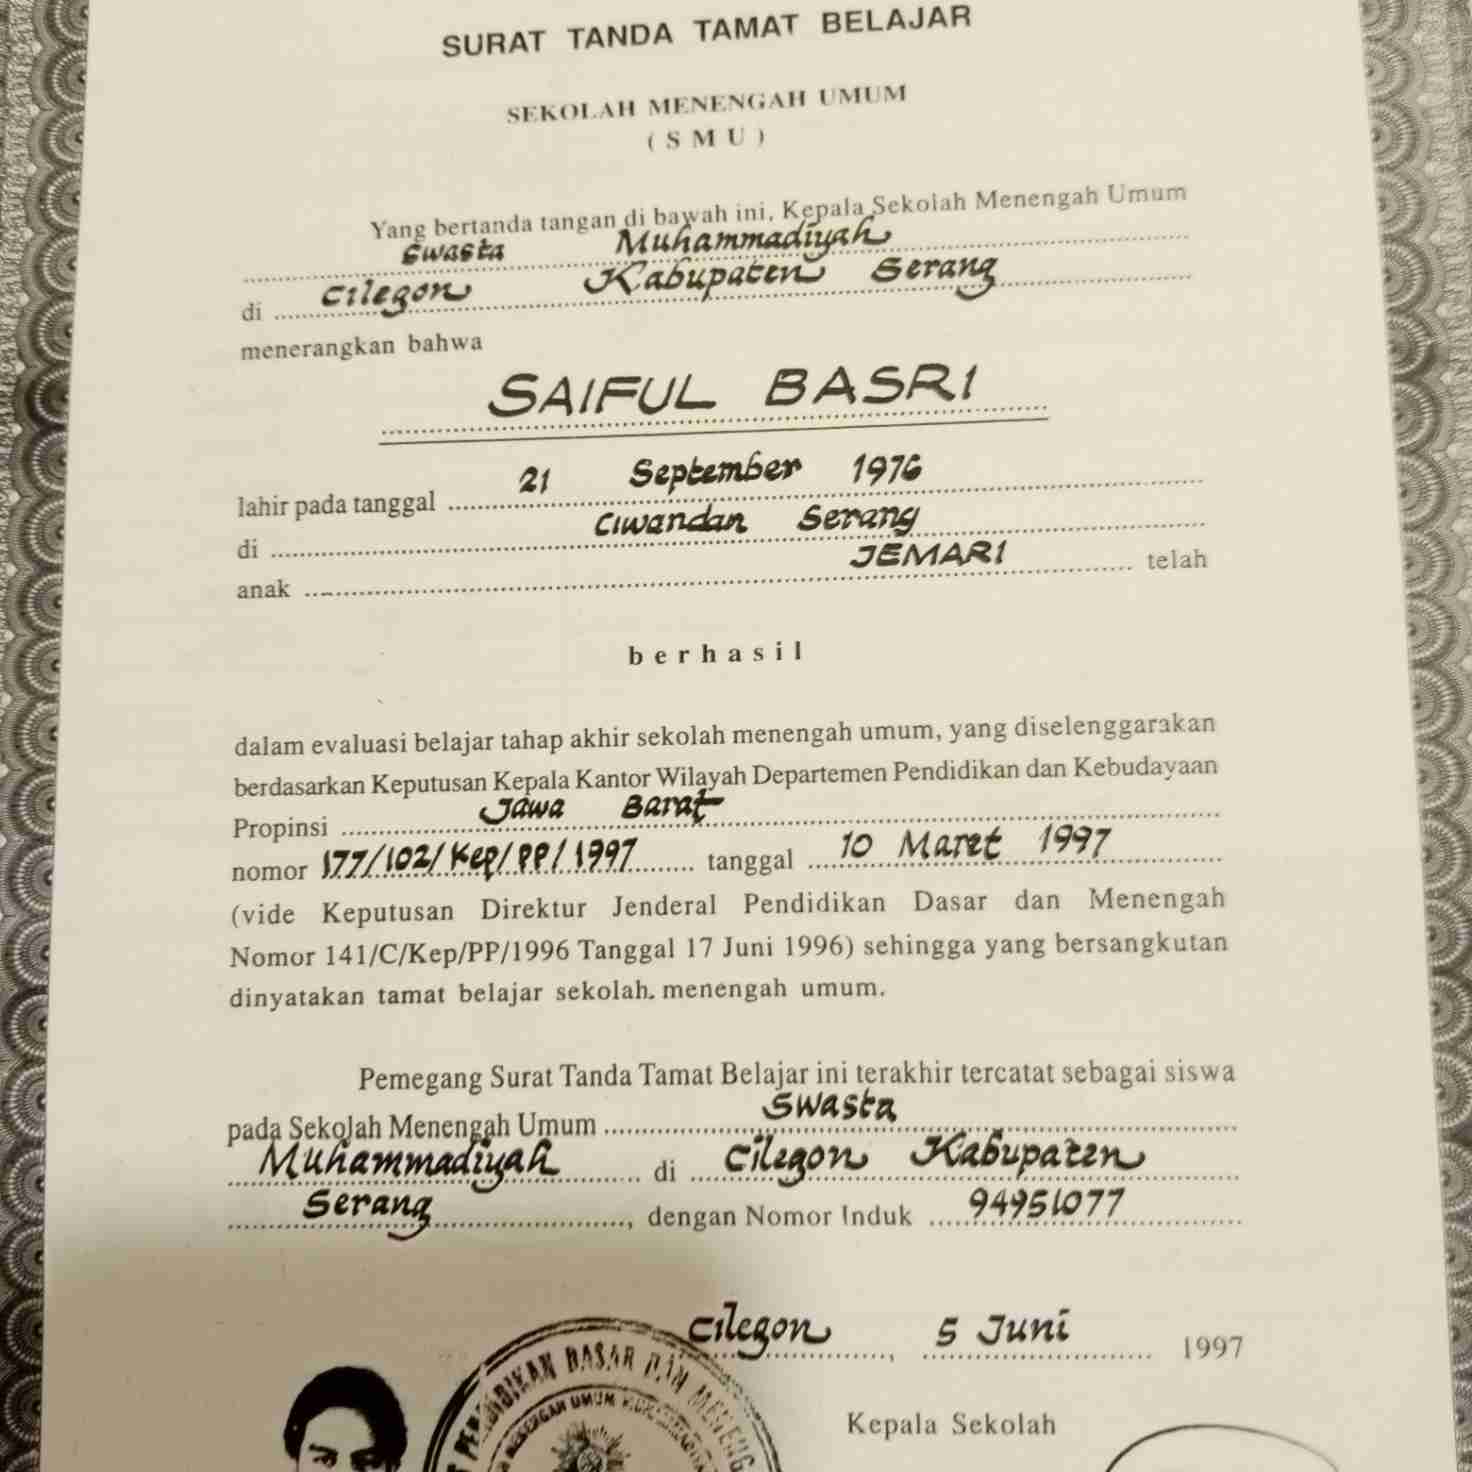 SURAT TANDA TAMAT BELAJAR
SEKOLAH MENENGAH UMUM
( S M U )
Yang bertanda tangan di bawah ini, Kepala Sekolah Menengah Umum
Swasta Muhammadiyah
di Cilegon Kabupaten Serang
menerangkan bahwa
SAIFUL BASRI
lahir pada tanggal 21 September 1976
di Ciwandan Serang
anak JEMARI telah
berhasil
dalam evaluasi belajar tahap akhir sekolah menengah umum, yang diselenggarakan
berdasarkan Keputusan Kepala Kantor Wilayah Departemen Pendidikan dan Kebudayaan
Propinsi Jawa Barat
nomor 177/102/Kep/PP/1997 tanggal 10 Maret 1997
(vide Keputusan Direktur Jenderal Pendidikan Dasar dan Menengah
Nomor 141/C/Kep/PP/1996 Tanggal 17 Juni 1996) sehingga yang bersangkutan
dinyatakan tamat belajar sekolah. menengah umum.
Pemegang Surat Tanda Tamat Belajar ini terakhir tercatat sebagai siswa
pada Sekolah Menengah Umum Swasta
Muhammadiyah di Cilegon Kabupaten
Serang, dengan Nomor Induk 94951077
Cilegon, 5 Juni 1997
PENDIDIKAN DASAR DAN MENENG
MENENGAH UMUM
Kepala Sekolah